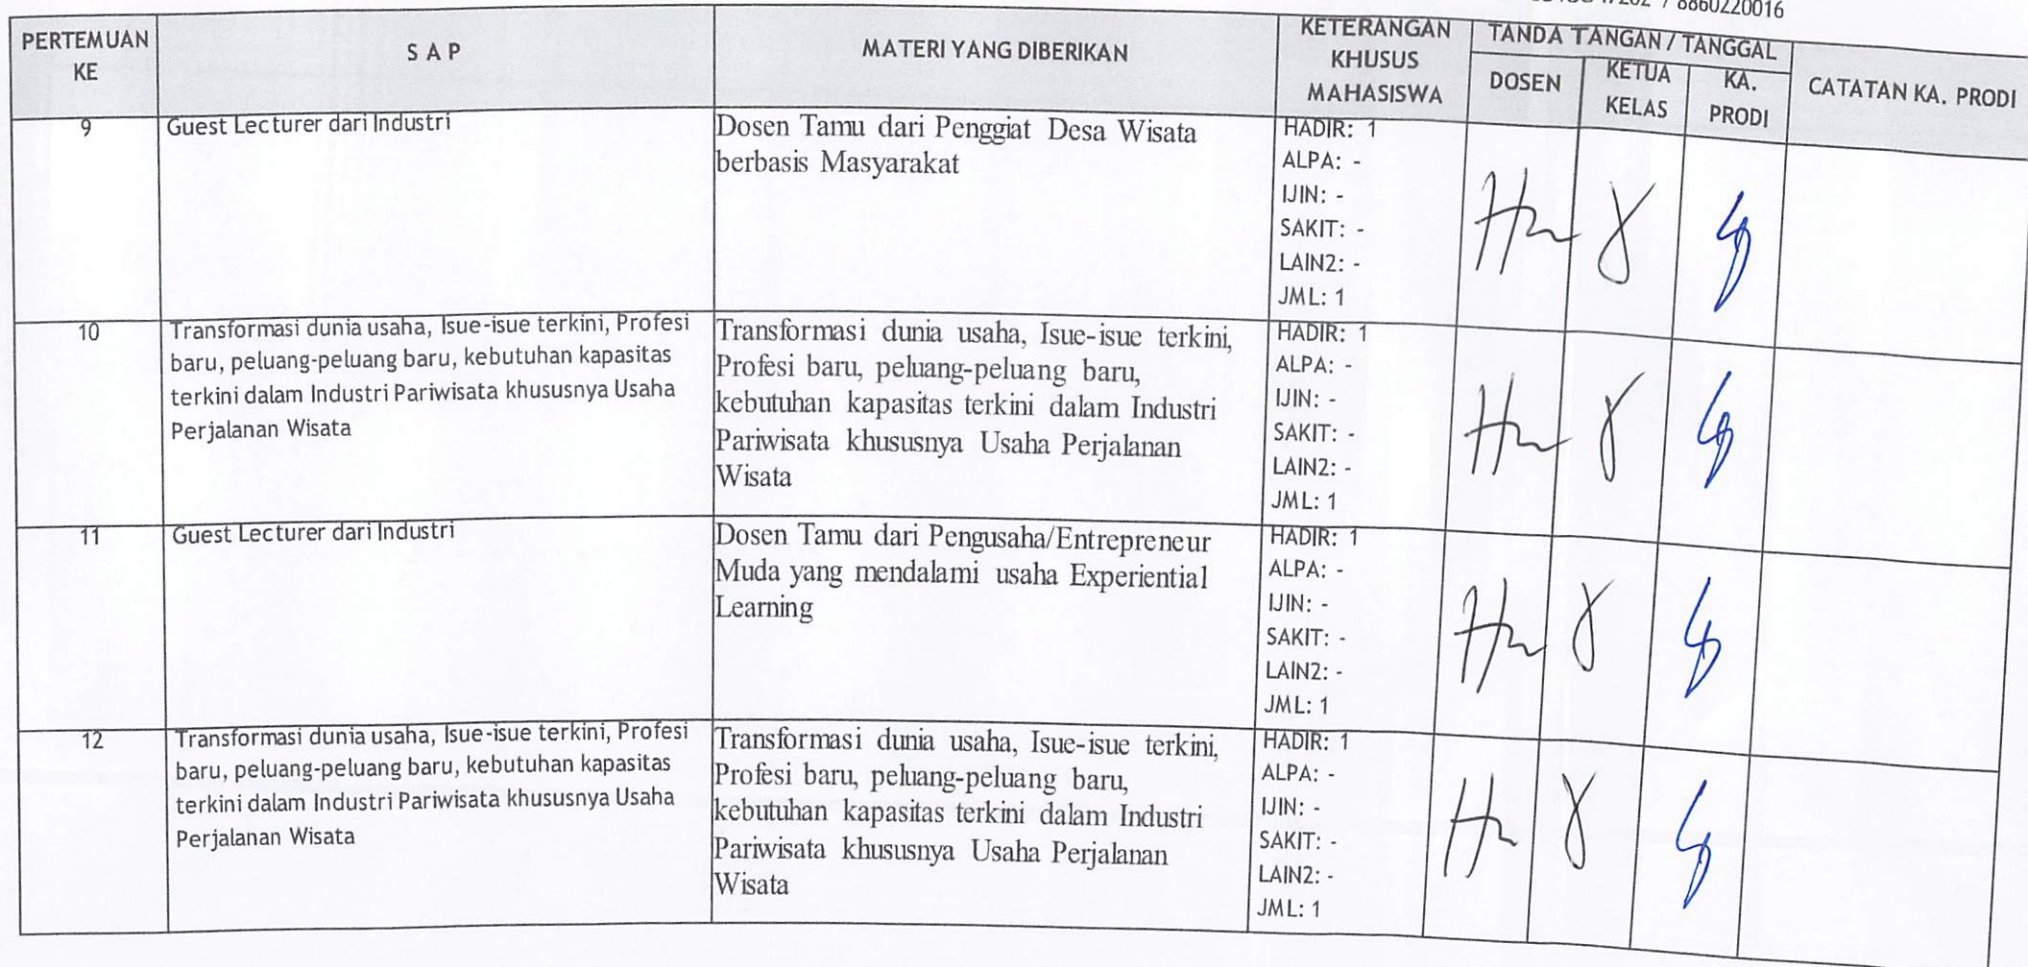 / 8860220016
PERTEMUAN
KE
S A P
MATERI YANG DIBERIKAN
KETERANGAN
KHUSUS
MAHASISWA
TANDA TANGAN / TANGGAL
DOSEN
KETUA
KELAS
KA.
PRODI
CATATAN KA. PRODI
9
Guest Lecturer dari Industri
Dosen Tamu dari Penggiat Desa Wisata
berbasis Masyarakat
HADIR: 1
ALPA: -
IJIN: -
SAKIT: -
LAIN2: -
JML: 1
10
Transformasi dunia usaha, Isue-isue terkini, Profesi
baru, peluang-peluang baru, kebutuhan kapasitas
terkini dalam Industri Pariwisata khususnya Usaha
Perjalanan Wisata
Transformasi dunia usaha, Isue-isue terkini,
Profesi baru, peluang-peluang baru,
kebutuhan kapasitas terkini dalam Industri
Pariwisata khususnya Usaha Perjalanan
Wisata
HADIR: 1
ALPA: -
IJIN: -
SAKIT: -
LAIN2: -
JML: 1
11
Guest Lecturer dari Industri
Dosen Tamu dari Pengusaha/Entrepreneur
Muda yang mendalami usaha Experiential
Learning
HADIR: 1
ALPA: -
IJIN: -
SAKIT: -
LAIN2: -
JML: 1
12
Transformasi dunia usaha, Isue-isue terkini, Profesi
baru, peluang-peluang baru, kebutuhan kapasitas
terkini dalam Industri Pariwisata khususnya Usaha
Perjalanan Wisata
Transformasi dunia usaha, Isue-isue terkini,
Profesi baru, peluang-peluang baru,
kebutuhan kapasitas terkini dalam Industri
Pariwisata khususnya Usaha Perjalanan
Wisata
HADIR: 1
ALPA: -
IJIN: -
SAKIT: -
LAIN2: -
JML: 1